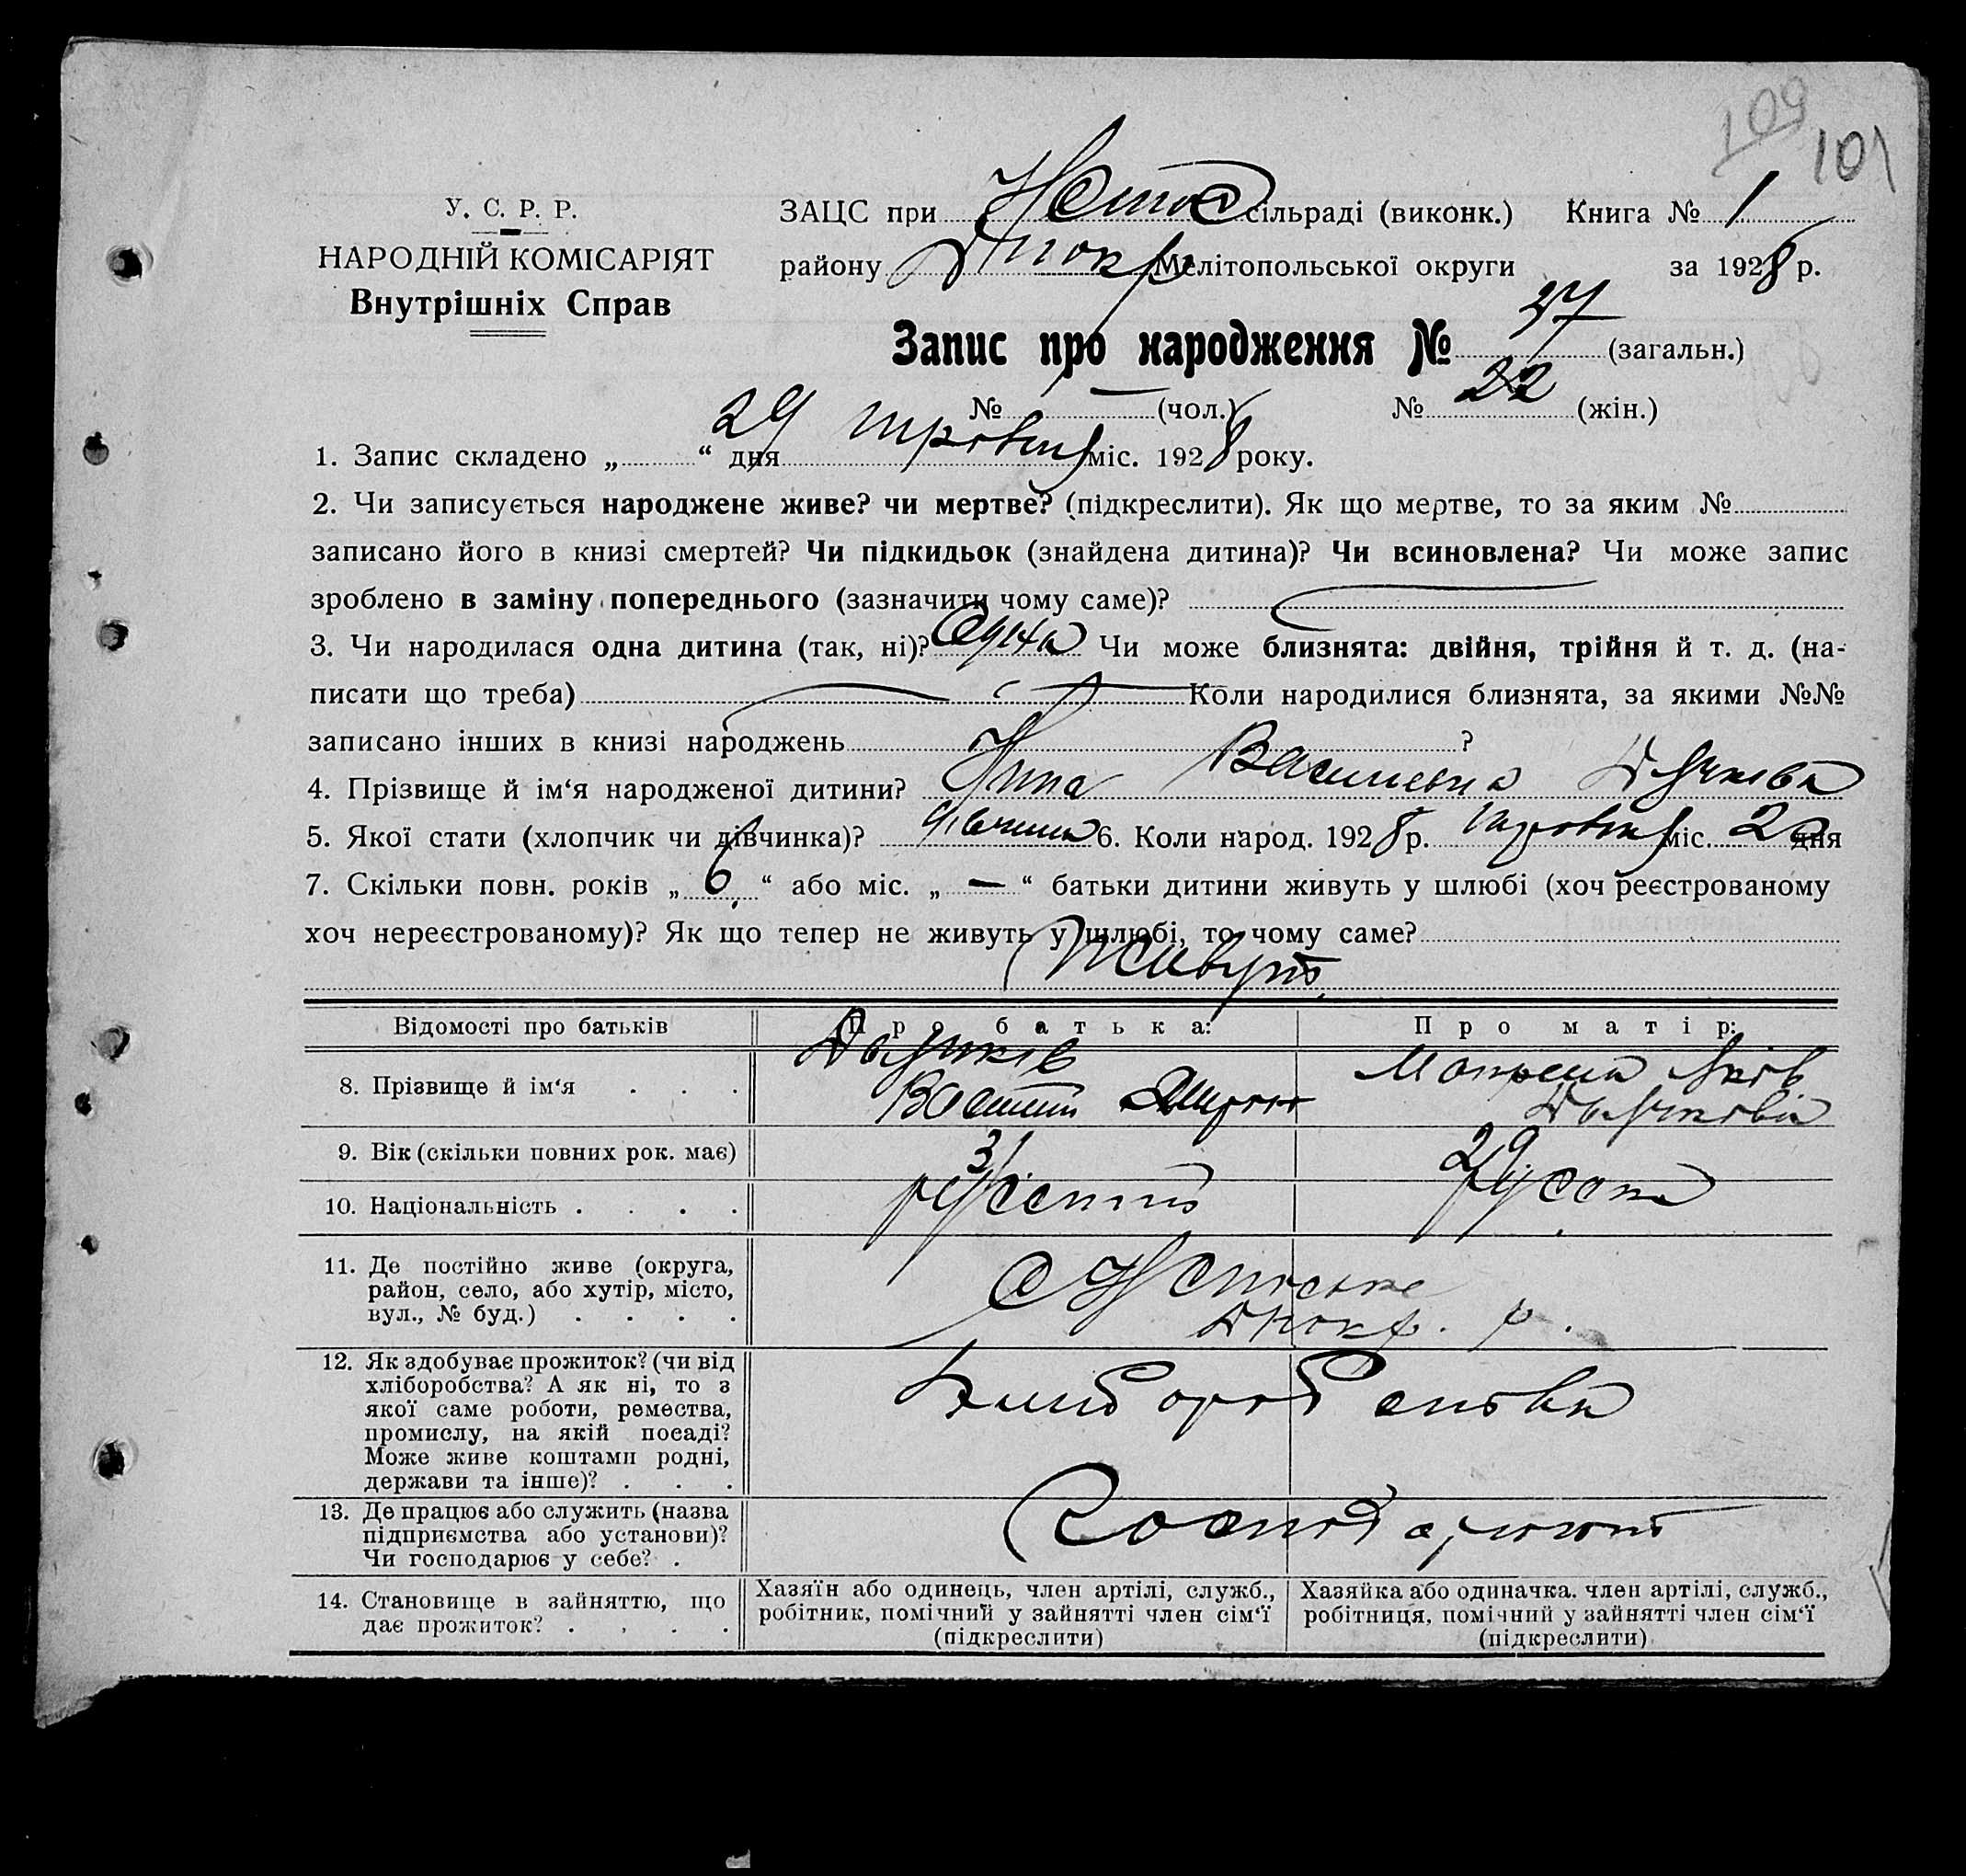 109
101
У. С. Р. Р.
НАРОДНІЙ КОМІСАРІЯТ
Внутрішніх Справ
ЗАЦС при сільраді (виконк.) Книга № 1
району Мелітопольської округи за 1928 р.
Запис про народження № 37 (загальн.)
№ — (чол.) № 22 (жін.)
1. Запис складено „ “ 29 дня травня міс. 1928 року.
2. Чи записується народжене живе? чи мертве? (підкреслити). Як що мертве, то за яким №
записано його в книзі смертей? Чи підкидьок (знайдена дитина)? Чи всиновлена? Чи може запис
зроблено в заміну попереднього (зазначити чому саме)?
3. Чи народилася одна дитина (так, ні)? Одна Чи може близнята: двійня, трійня й т. д. (на-
писати що треба) Коли народилися близнята, за якими №№
записано інших в книзі народжень ?
4. Прізвище й ім‘я народженої дитини? Нина Васильевна
5. Якої стати (хлопчик чи дівчинка)? дівчина 6. Коли народ. 1928 р. травня міс. дня
7. Скільки повн. років „ 6 “ або міс. „ — “ батьки дитини живуть у шлюбі (хоч реєстрованому
хоч нереєстрованому)? Як що тепер не живуть у шлюбі, то чому саме?
Живуть
Відомості про батьків Про батька: Про матір:
8. Прізвище й ім‘я
9. Вік (скільки повних рок. має) 31 29
10. Національність руський руська
11. Де постійно живе (округа,
район, село, або хутір, місто,
вул., № буд.)
12. Як здобуває прожиток? (чи від
хліборобства? А як ні, то з
якої саме роботи, ремества,
промислу, на якій посаді?
Може живе коштами родні,
держави та інше)?
Хліборобства
13. Де працює або служить (назва
підприємства або установи)?
Чи господарює у себе?
Господарюют
14. Становище в зайняттю, що
дає прожиток?
Хазяїн або одинець, член артілі, служб.,
робітник, помічний у зайнятті член сім‘ї
(підкреслити)
Хазяйка або одиначка. член артілі, служб.,
робітниця, помічний у зайнятті член сім‘ї
(підкреслити)